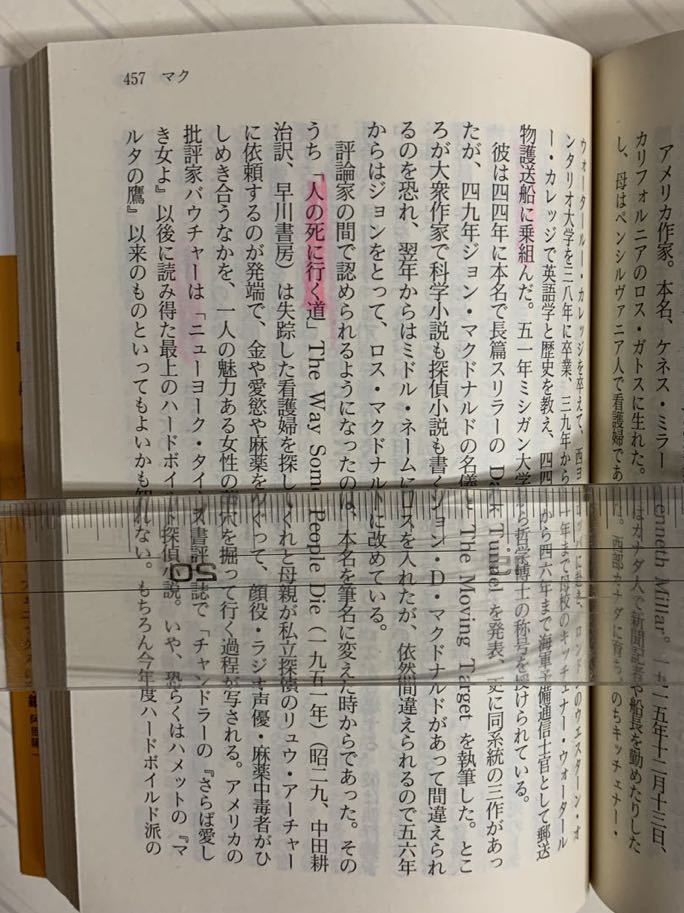 アメリカ作家。本名、ケネス・ミラー Kenneth Millar。一九一五年十二月十三日、
カリフォルニアのロス・ガトスに生れた。父はカナダ人で新聞記者や船長を勤めたりした
し、母はペンシルヴァニア人で看護婦であった。西部カナダに育ち、のちキッチェナー・
ウォータールー・カレッジを卒えて、西ヨーロッパに遊び、ロンドンのウエスターン・オ
ンタリオ大学を三八年に卒業、三九年から
ー・カレッジで英語学と歴史を教え、四四年から四六年まで海軍予備通信士官として郵送
物護送船に乗組んだ。五一年ミシガン大学から哲学博士の称号を授けられている。
彼は四四年に本名で長篇スリラーの Dark Tunnel を発表、更に同系統の三作があっ
たが、四九年ジョン・マクドナルドの名儀で The Moving Target を執筆した。とこ
ろが大衆作家で科学小説も探偵小説も書くジョン・D・マクドナルドがあって間違えられ
るのを恐れ、翌年からはミドル・ネームにロスを入れたが、依然間違えられるので五六年
からはジョンをとって、ロス・マクドナルドに改めている。
評論家の間で認められるようになったのは、本名を筆名に変えた時からであった。その
うち「人の死に行く道」The Way Some People Die（一九五一年）（昭二九、中田耕
治訳、早川書房）は失踪した看護婦を探してくれと母親が私立探偵のリュウ・アーチャー
に依頼するのが発端で、金や愛慾や麻薬をめぐって、顔役・ラジオ声優・麻薬中毒者がひ
しめき合うなかを、一人の魅力ある女性の墓穴を掘って行く過程が写される。アメリカの
批評家バウチャーは「ニューヨーク・タイムズ書評」誌で「チャンドラーの『さらば愛し
き女よ』以後に読み得た最上のハードボイルド探偵小説。いや、恐らくはハメットの『マ
ルタの鷹』以来のものといってもよいかも知れない。もちろん今年度ハードボイルド派の
457 マク
50